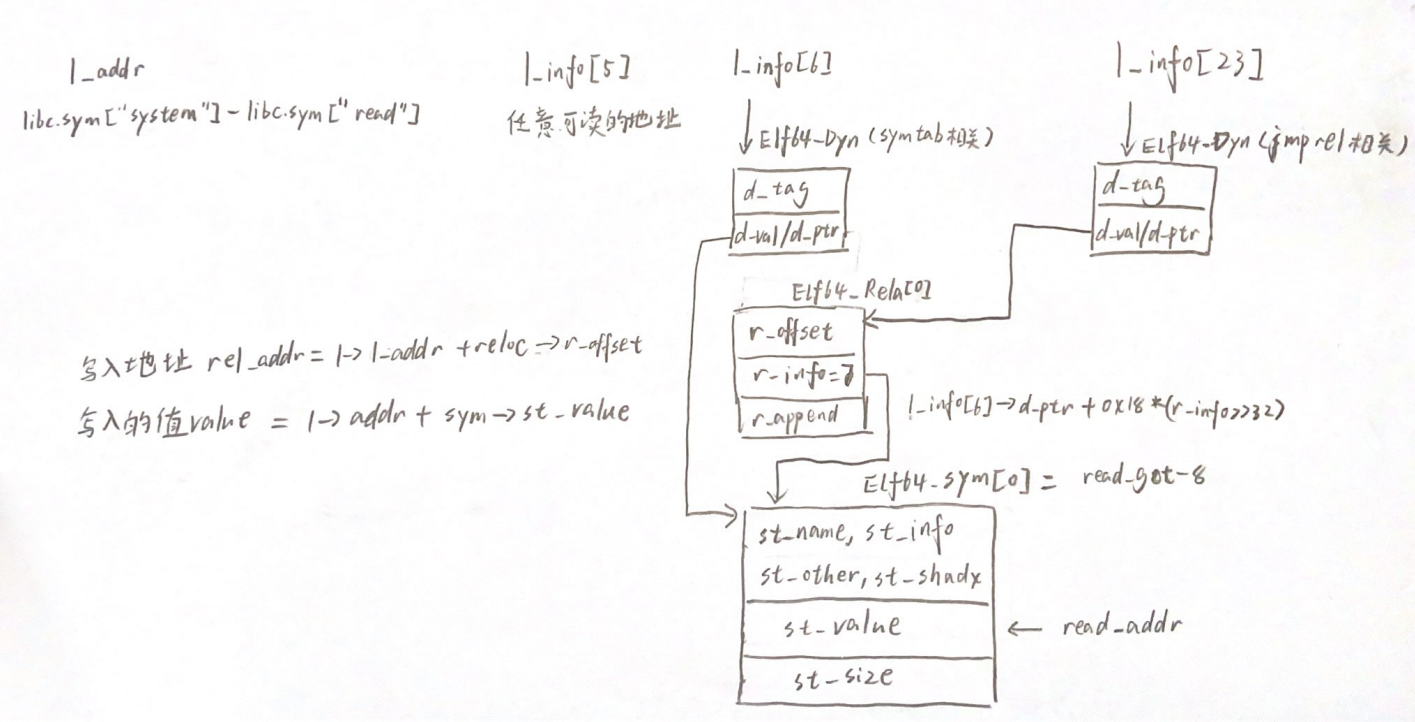 l_addr
libc.sym["system"]-libc.sym["read"]
l_info[5]
任意可读的地址
l_info[6]
Elf64-Dyn (symtab相关)
d_tag
d-val/d-ptr
l_info[23]
Elf64-Dyn (jmprel相关)
d-tag
d-val/d-ptr
Elf64_Rela[0]
r_offset
r-info=7
r_append
写入地址 rel_addr = l->l_addr + reloc->r_offset
写入的值value = l->addr + sym->st_value
l_info[6]->d_ptr + 0x18*(r_info>>32)
Elf64-sym[0] = read_got-8
st_name, st_info
st_other, st_shndx
st_value
← read_addr
st_size